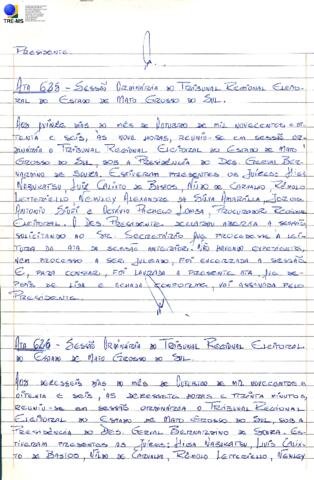 TRE-MS
PRESIDENTE.
ATA 628 - SESSÃO ORDINÁRIA DO TRIBUNAL REGIONAL ELEITO-
RAL DO ESTADO DE MATO GROSSO DO SUL.
AOS QUINZE DIAS DO MÊS DE OUTUBRO DE MIL NOVECENTOS E OI-
TENTA E SEIS, ÀS NOVE HORAS, REUNIU-SE EM SESSÃO OR-
DINÁRIA O TRIBUNAL REGIONAL ELEITORAL DO ESTADO DE MATO
GROSSO DO SUL, SOB A PRESIDÊNCIA DO DES. GERVAL BER-
NARDINO DE SOUZA. ESTIVERAM PRESENTES OS JUÍZES: HIGA
NABUKATSU, LUÍZ CALIXTO DE BASTOS, NILDO DE CARVALHO, RÊMOLO
LETTERIELLO, NEMILEY ALEXANDRE DA SILVA
ANTONIO E OCTÁVIO PACHECO PROCURADOR REGIONAL
ELEITORAL. O DES. PRESIDENTE DECLAROU ABERTA A SESSÃO
SOLICITANDO AO SR. SECRETÁRIO QUE PROCEDESSE A LEI-
TURA DA ATA DA SESSÃO ANTERIOR. NÃO HAVENDO EXPEDIENTE,
NEM PROCESSO A SER JULGADO, FOI ENCERRADA A SESSÃO
E, PARA CONSTAR, FOI LAVRADA A PRESENTE ATA, QUE DE-
POIS DE LIDA E ACHADA CONFORME, VAI ASSINADA PELO
PRESIDENTE.
ATA 629 - SESSÃO ORDINÁRIA DO TRIBUNAL REGIONAL ELEITORAL
DO ESTADO DE MATO GROSSO DO SUL.
AOS DEZESSEIS DIAS DO MÊS DE OUTUBRO DE MIL NOVECENTOS E
OITENTA E SEIS, ÀS DEZESSETE HORAS E TRINTA MINUTOS,
REUNIU-SE EM SESSÃO ORDINÁRIA O TRIBUNAL REGIONAL
ELEITORAL DO ESTADO DE MATO GROSSO DO SUL, SOB A
PRESIDÊNCIA DO DES. GERVAL BERNARDINO DE SOUZA. ES-
TIVERAM PRESENTES OS JUÍZES: HIGA NABUKATSU, LUÍS CALIX-
TO DE BASTOS, NILDO DE CARVALHO, RÊMOLO LETTERIELLO, NEMILEY